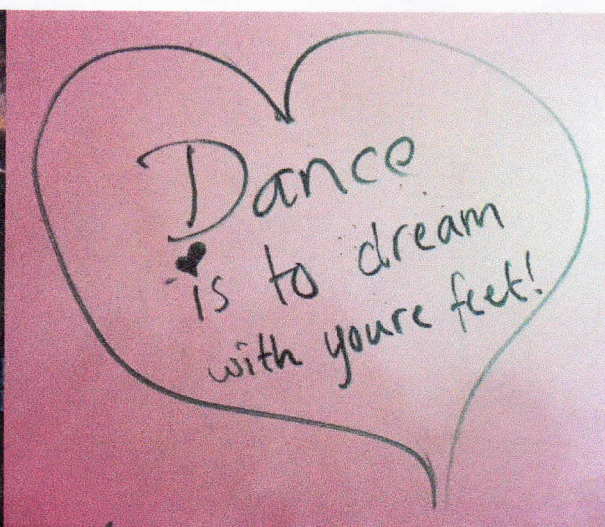 Dance
is to dream
with youre feet!